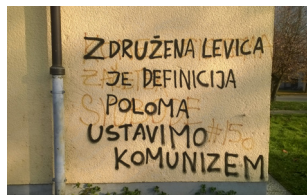 ZDRUŽENA LEVICA
JE DEFINICIJA
POLOMA
USTAVIMO
KOMUNIZEM